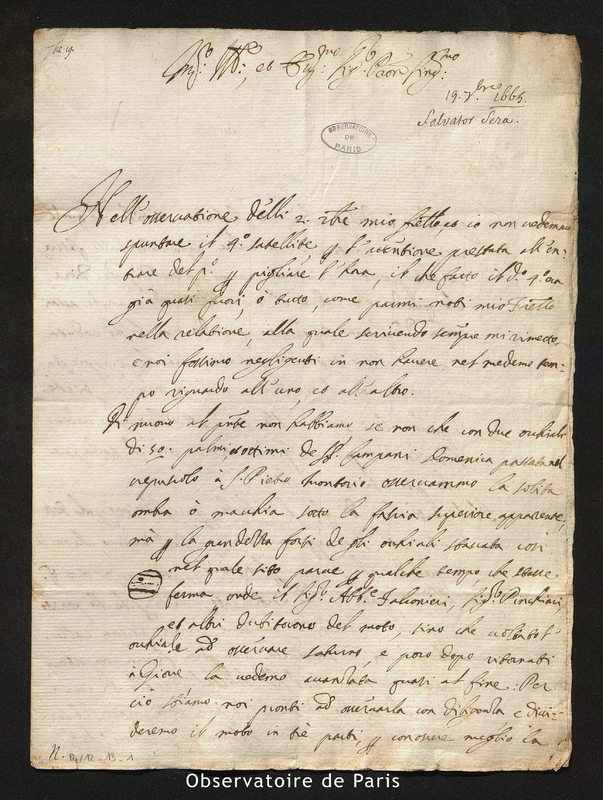 19. 7bre 1665.
Salvator Serra.
OBSERVATOIRE
DE
PARIS
Nell'osservatione delli 2. 7bre mio fratello, et io non vedemmo
spuntare il 4º. satellite, p l'attentione prestata all'en-
trare del pº. p pigliare l'hora, il che fatto il dº. 4º. era
già quasi fuori, ò tutto, come parmi noti mio fratello
nella relatione, alla quale scrivendo sempre mi rimetto,
e noi fossimo negligenti in non havere nel medemo tem-
po riguardo all'uno, et all'altro.
Di nuovo al pnte non habbiamo se non che con due ochiali
di 50. palmi, ottimi de SS. Campani Domenica passata nel
crepuscolo à S. Pietro Montorio osservammo la solita
ombra ò macchia sotto la fascia superiore, apparente,
mà p la grandezza forsi de gli ochiali staccata così
nel quale sito parve p qualche tempo, che stasse
ferma onde il Sigr. Abbe. Falconieri,
et altri dubitorono del moto, sino che voltato l'
ochiale ad osservare Saturno, e poco dopo ritornati
à Giove la vedemo avanzata quasi al fine: Per
ciò stiamo noi pronti ad osservarla con diligenza e divi-
deremo il moto in tre parti, p conoscere meglio la
Observatoire de Paris